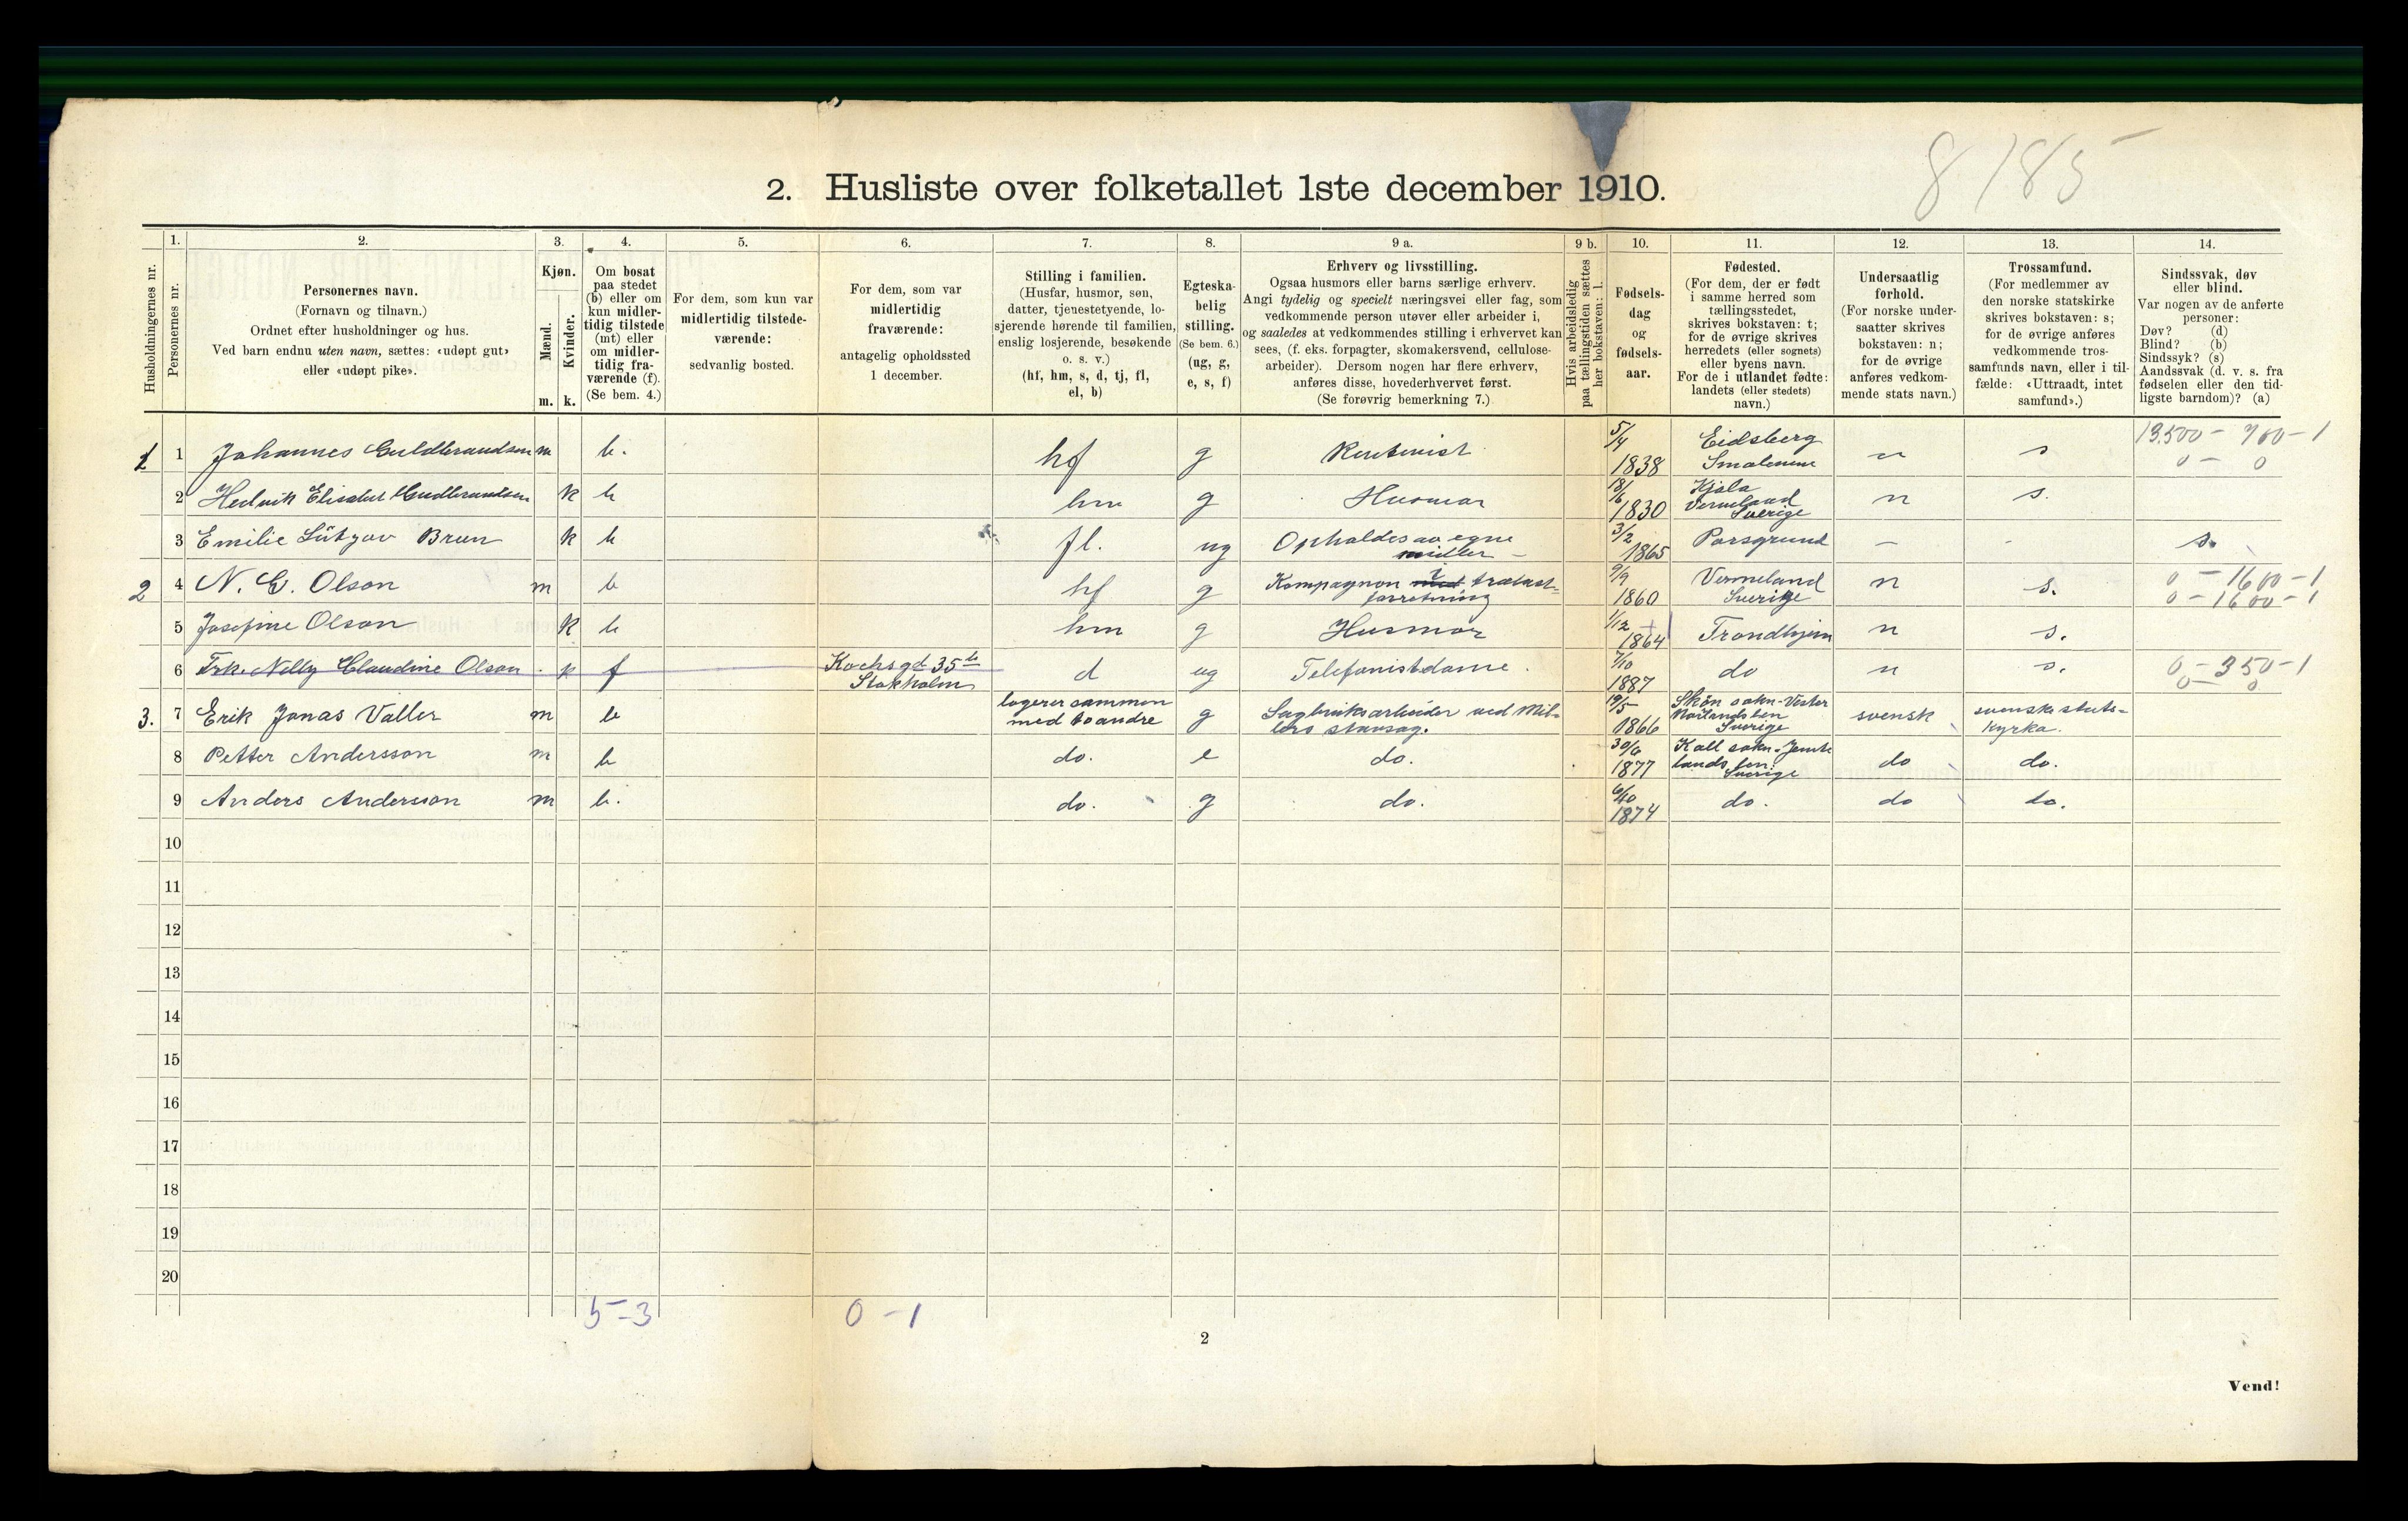 8 185
2. Husliste over folketallet 1ste december 1910.
Husholdningernes nr.
1. Personernes nr.
2. Personernes navn.
(Fornavn og tilnavn.)
Ordnet efter husholdninger og hus.
Ved barn endnu uten navn, sættes: «udøpt gut»
eller «udøpt pike».
3. Kjøn.
Mænd. m.
Kvinder. k.
4. Om bosat
paa stedet
(b) eller om
kun midler-
tidig tilstede
(mt) eller
om midler-
tidig fra-
værende (f).
(Se bem. 4.)
5. For dem, som kun var
midlertidig tilstede-
værende:
sedvanlig bosted.
6. For dem, som var
midlertidig
fraværende:
antagelig opholdssted
1 december.
7. Stilling i familien.
(Husfar, husmor, søn,
datter, tjenestetyende, lo-
sjerende hørende til familien,
enslig losjerende, besøkende
o. s. v.)
(hf, hm, s, d, tj, fl,
el, b)
8. Egteska-
belig
stilling.
(Se bem. 6.)
(ug, g,
e, s, f)
9 a. Erhverv og livsstilling.
Ogsaa husmors eller barns særlige erhverv.
Angi tydelig og specielt næringsvei eller fag, som
vedkommende person utøver eller arbeider i,
og saaledes at vedkommendes stilling i erhvervet kan
sees, (f. eks. forpagter, skomakersvend, cellulose-
arbeider). Dersom nogen har flere erhverv,
anføres disse, hovederhvervet først.
(Se forøvrig bemerkning 7.)
9 b. Hvis arbeidsledig
paa tællingstiden sættes
her bokstaven: l.
10. Fødsels-
dag
og
fødsels-
aar.
11. Fødested.
(For dem, der er født
i samme herred som
tællingsstedet,
skrives bokstaven: t;
for de øvrige skrives
herredets (eller sognets)
eller byens navn.
For de i utlandet fødte:
landets (eller stedets)
navn.)
12. Undersaatlig
forhold.
(For norske under-
saatter skrives
bokstaven: n;
for de øvrige
anføres vedkom-
mende stats navn.)
13. Trossamfund.
(For medlemmer av
den norske statskirke
skrives bokstaven: s;
for de øvrige anføres
vedkommende tros-
samfunds navn, eller i til-
fælde: «Uttraadt, intet
samfund».)
14. Sindssvak, døv
eller blind.
Var nogen av de anførte
personer:
Døv? (d)
Blind? (b)
Sindssyk? (s)
Aandssvak (d. v. s. fra
fødselen eller den tid-
ligste barndom)? (a)
1 1 Johannes Guldbrandsen m b. hf g Rentenist 5/4 1838 Eidsberg Smalenene n s 13.500 - 700 - 1
0 - 0
2 Hedvik Elisabet Guldbrandsen k b hm g Husmor 18/6 1830 Kjøla Vermeland Sverige n s.
3 Emilie Lützov Brun k b fl. ug Opholdes av egne midler - 3/2 1865 Porsgrund - - s.
2 4 N. E. Olson m b hf g Kompagnon med i trælast-
forretning 9/9 1860 Vermeland Sverige n s. 0 - 1600 - 1
0 - 1600 - 1
5 Josefine Olson k b hm g Husmor 1/12 1864 Trondhjem n s.
6 Frk. Nelly Claudine Olson k f Kochsgd 35 b
Stokholm d ug Telefonistdame. 7/10 1887 do n s. 0 - 350 - 1
0 - 0
3. 7 Erik Jonas Valler m b logerer sammen
med to andre g Sagbruksarbeider ved Mil-
lers stavsag. 19/5 1866 Skön sokn - Vester
Norlands len
Sverige svensk svenske stats-
kyrka.
8 Petter Andersson m b do. e do. 30/6 1877 Kall sokn - Jemt
lands len
Sverige do do.
9 Anders Andersson m b. do. g do. 6/10 1874 do. do do.
10
11
12
13
14
15
16
17
18
19
20
5 - 3 0 - 1
2
Vend!